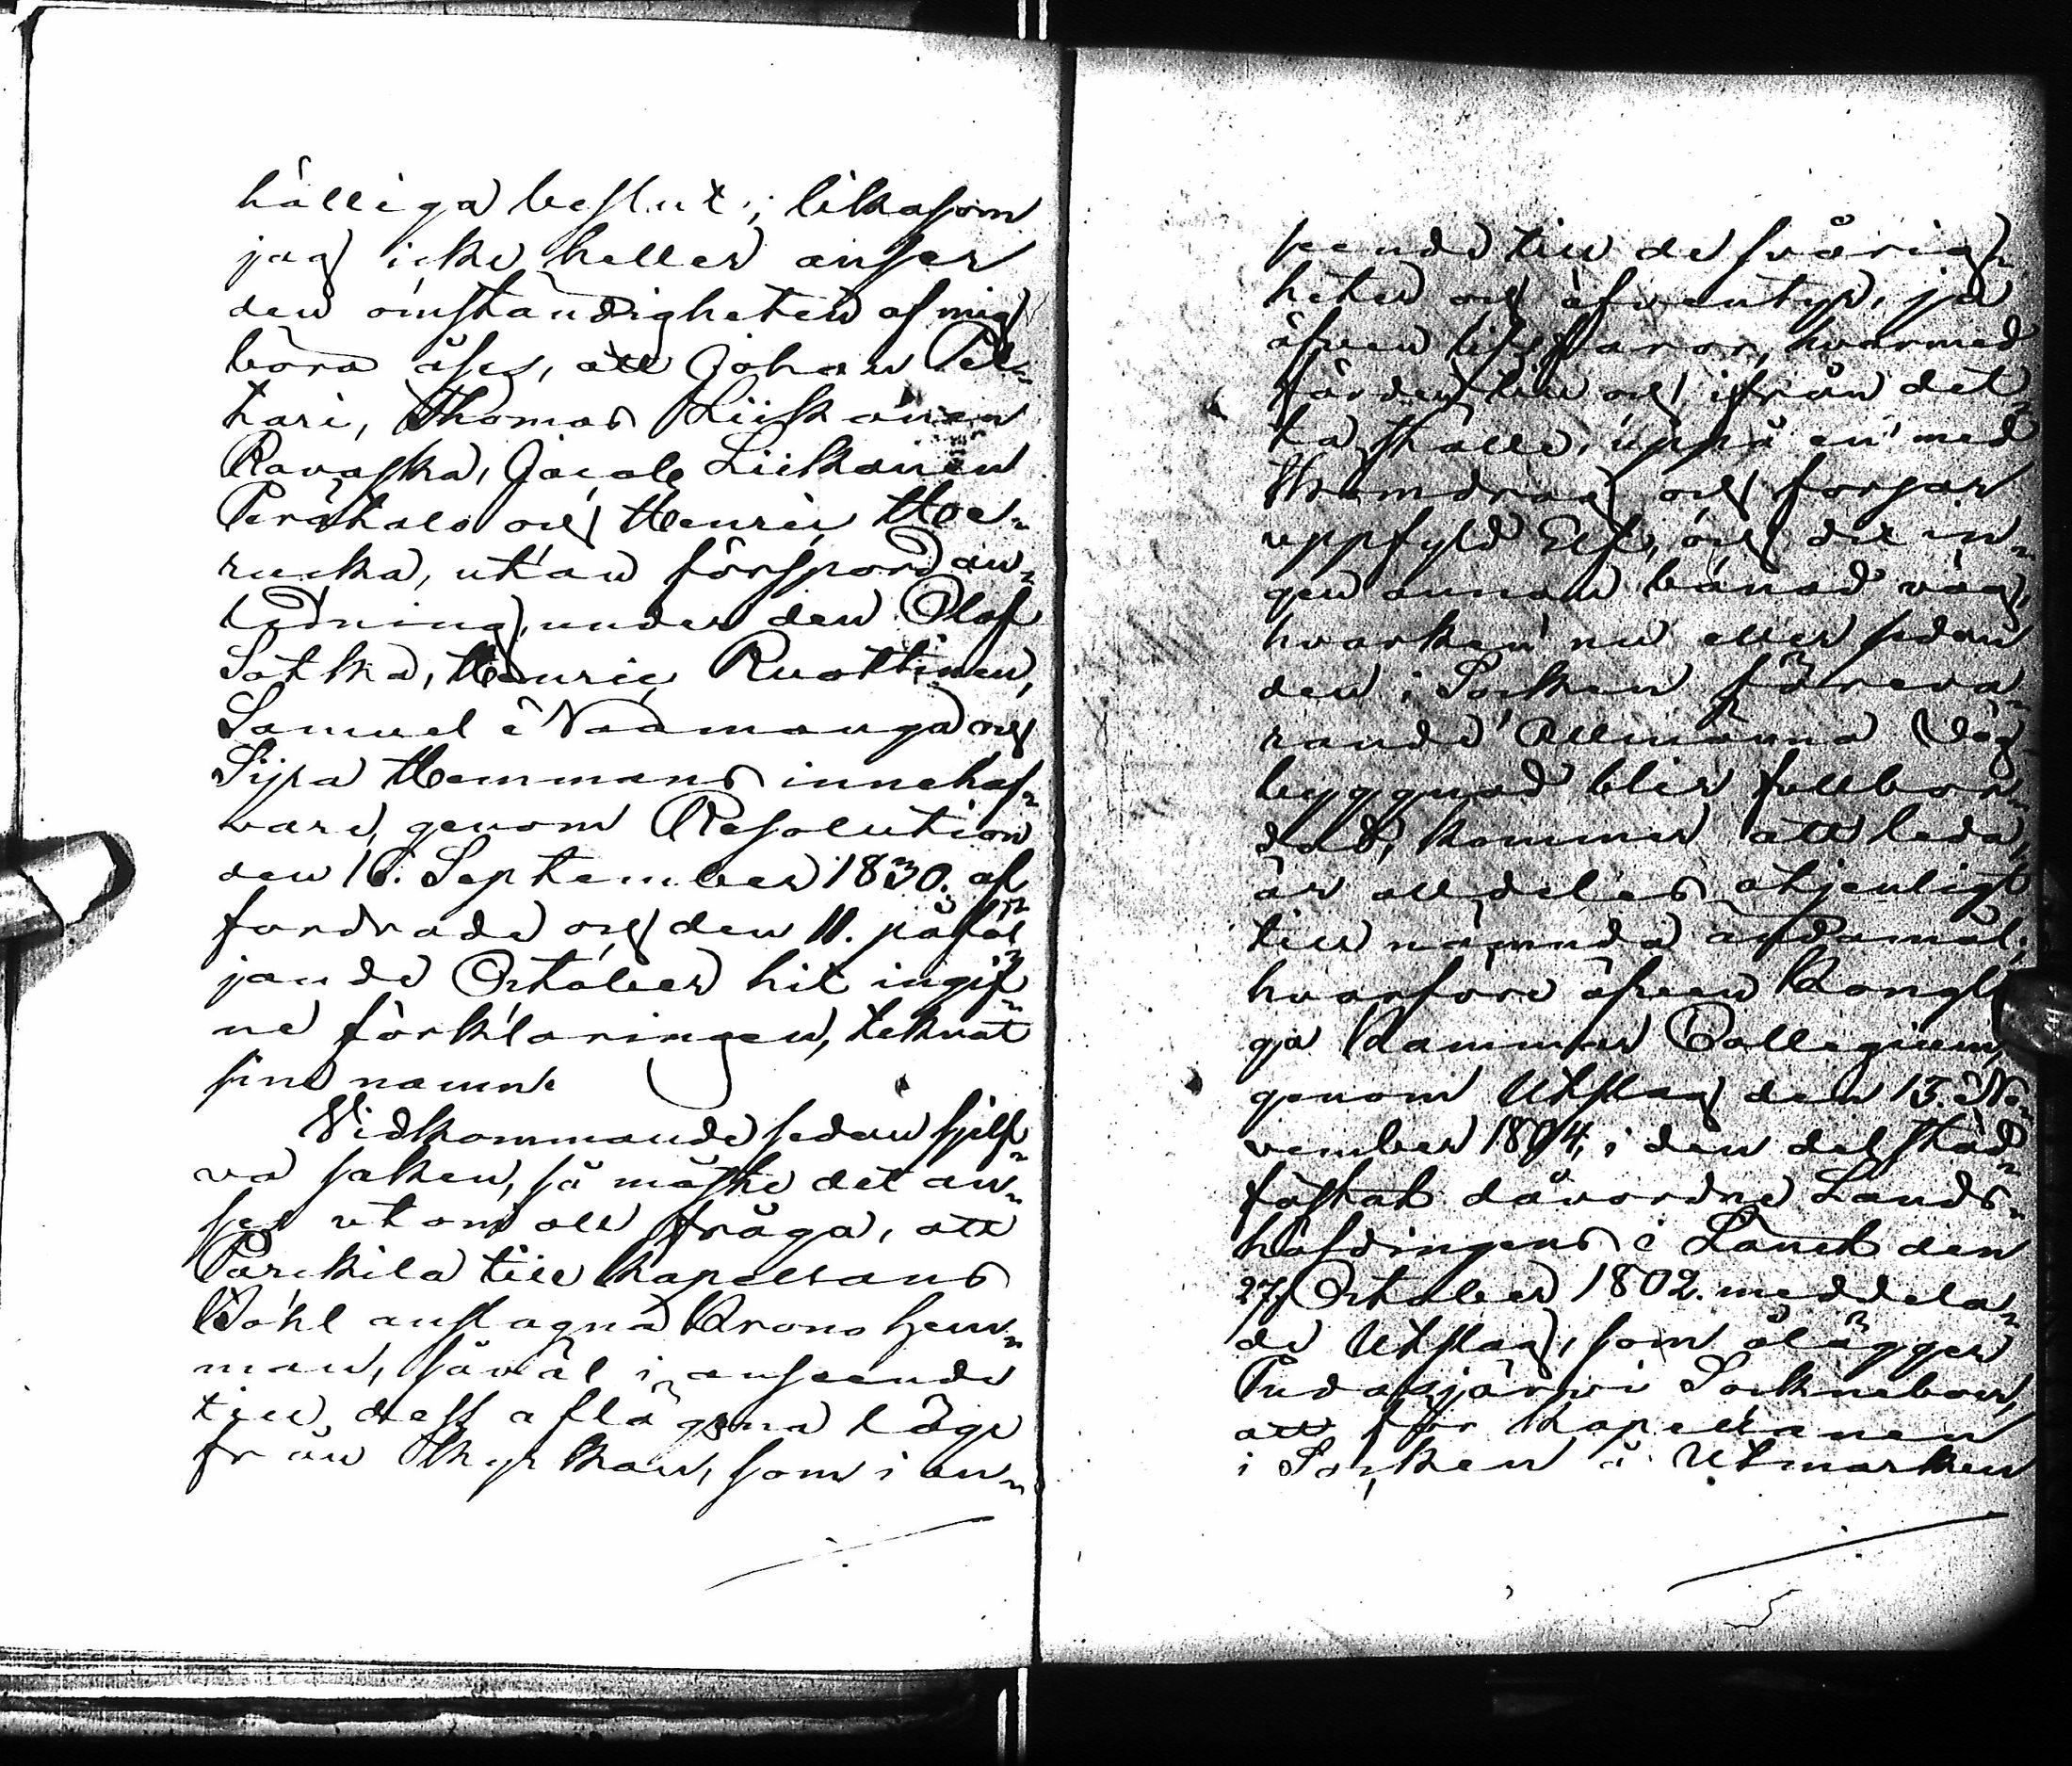 hälliga beslut; likasom
jag icke heller anser
den omständigheten af mig
böra åses, att Johan Pel¬
tari, Thomas Liikanen
Ravaska, Jacob Liikanen
Perähalo och Henric Hoc¬
rucka, utan förspord an¬
ledning, under den Olof
Sotka, Henric Ruottinen,
Samuel Naamanga och
Sipra Hemmans innehaf¬
vare, genom Resolution
den 16. September 1830. af¬
fordrade och den 11. påföl¬
jande October hit ingif¬
ne förklaringen, teknat
sina namn.
Vidkommande sedan sjelf¬
va saken, så måste det an¬
ses utom all fråga, att
Parkkila till kapellans
Bohl anslagna Krono hem¬
man, såväl i anseende
till dess aflägsna läge
från Kyrkan, som i an¬
seende till de svårig¬
heter och äfventyr, ja
äfven lifsfaror, hvarmed
färden till och ifrån det¬
ta ställe, uppå en med
Strömdrag och forsar
uppfyld Elf, och dit in¬
gen annan banad väg,
hvarken nu eller sedan
den i Socken föreva¬
rande Allmänna Väg
byggnad blir fullbor¬
dad, kommer att leda,
är alldeles otjenligt
till nämnda ändamål;
hvarföre äfven Kongli
ga Kammar Collegium,
genom Utslag den 13. No¬
vember 1804, i den del stad¬
fästat dåvarande Lands¬
höfdingens i Länet den
27. October 1802. meddela¬
de Utslag, som ålägger
Pudasjärvi Sockneboer,
att för Kapellanen
i Socken å Utmarken